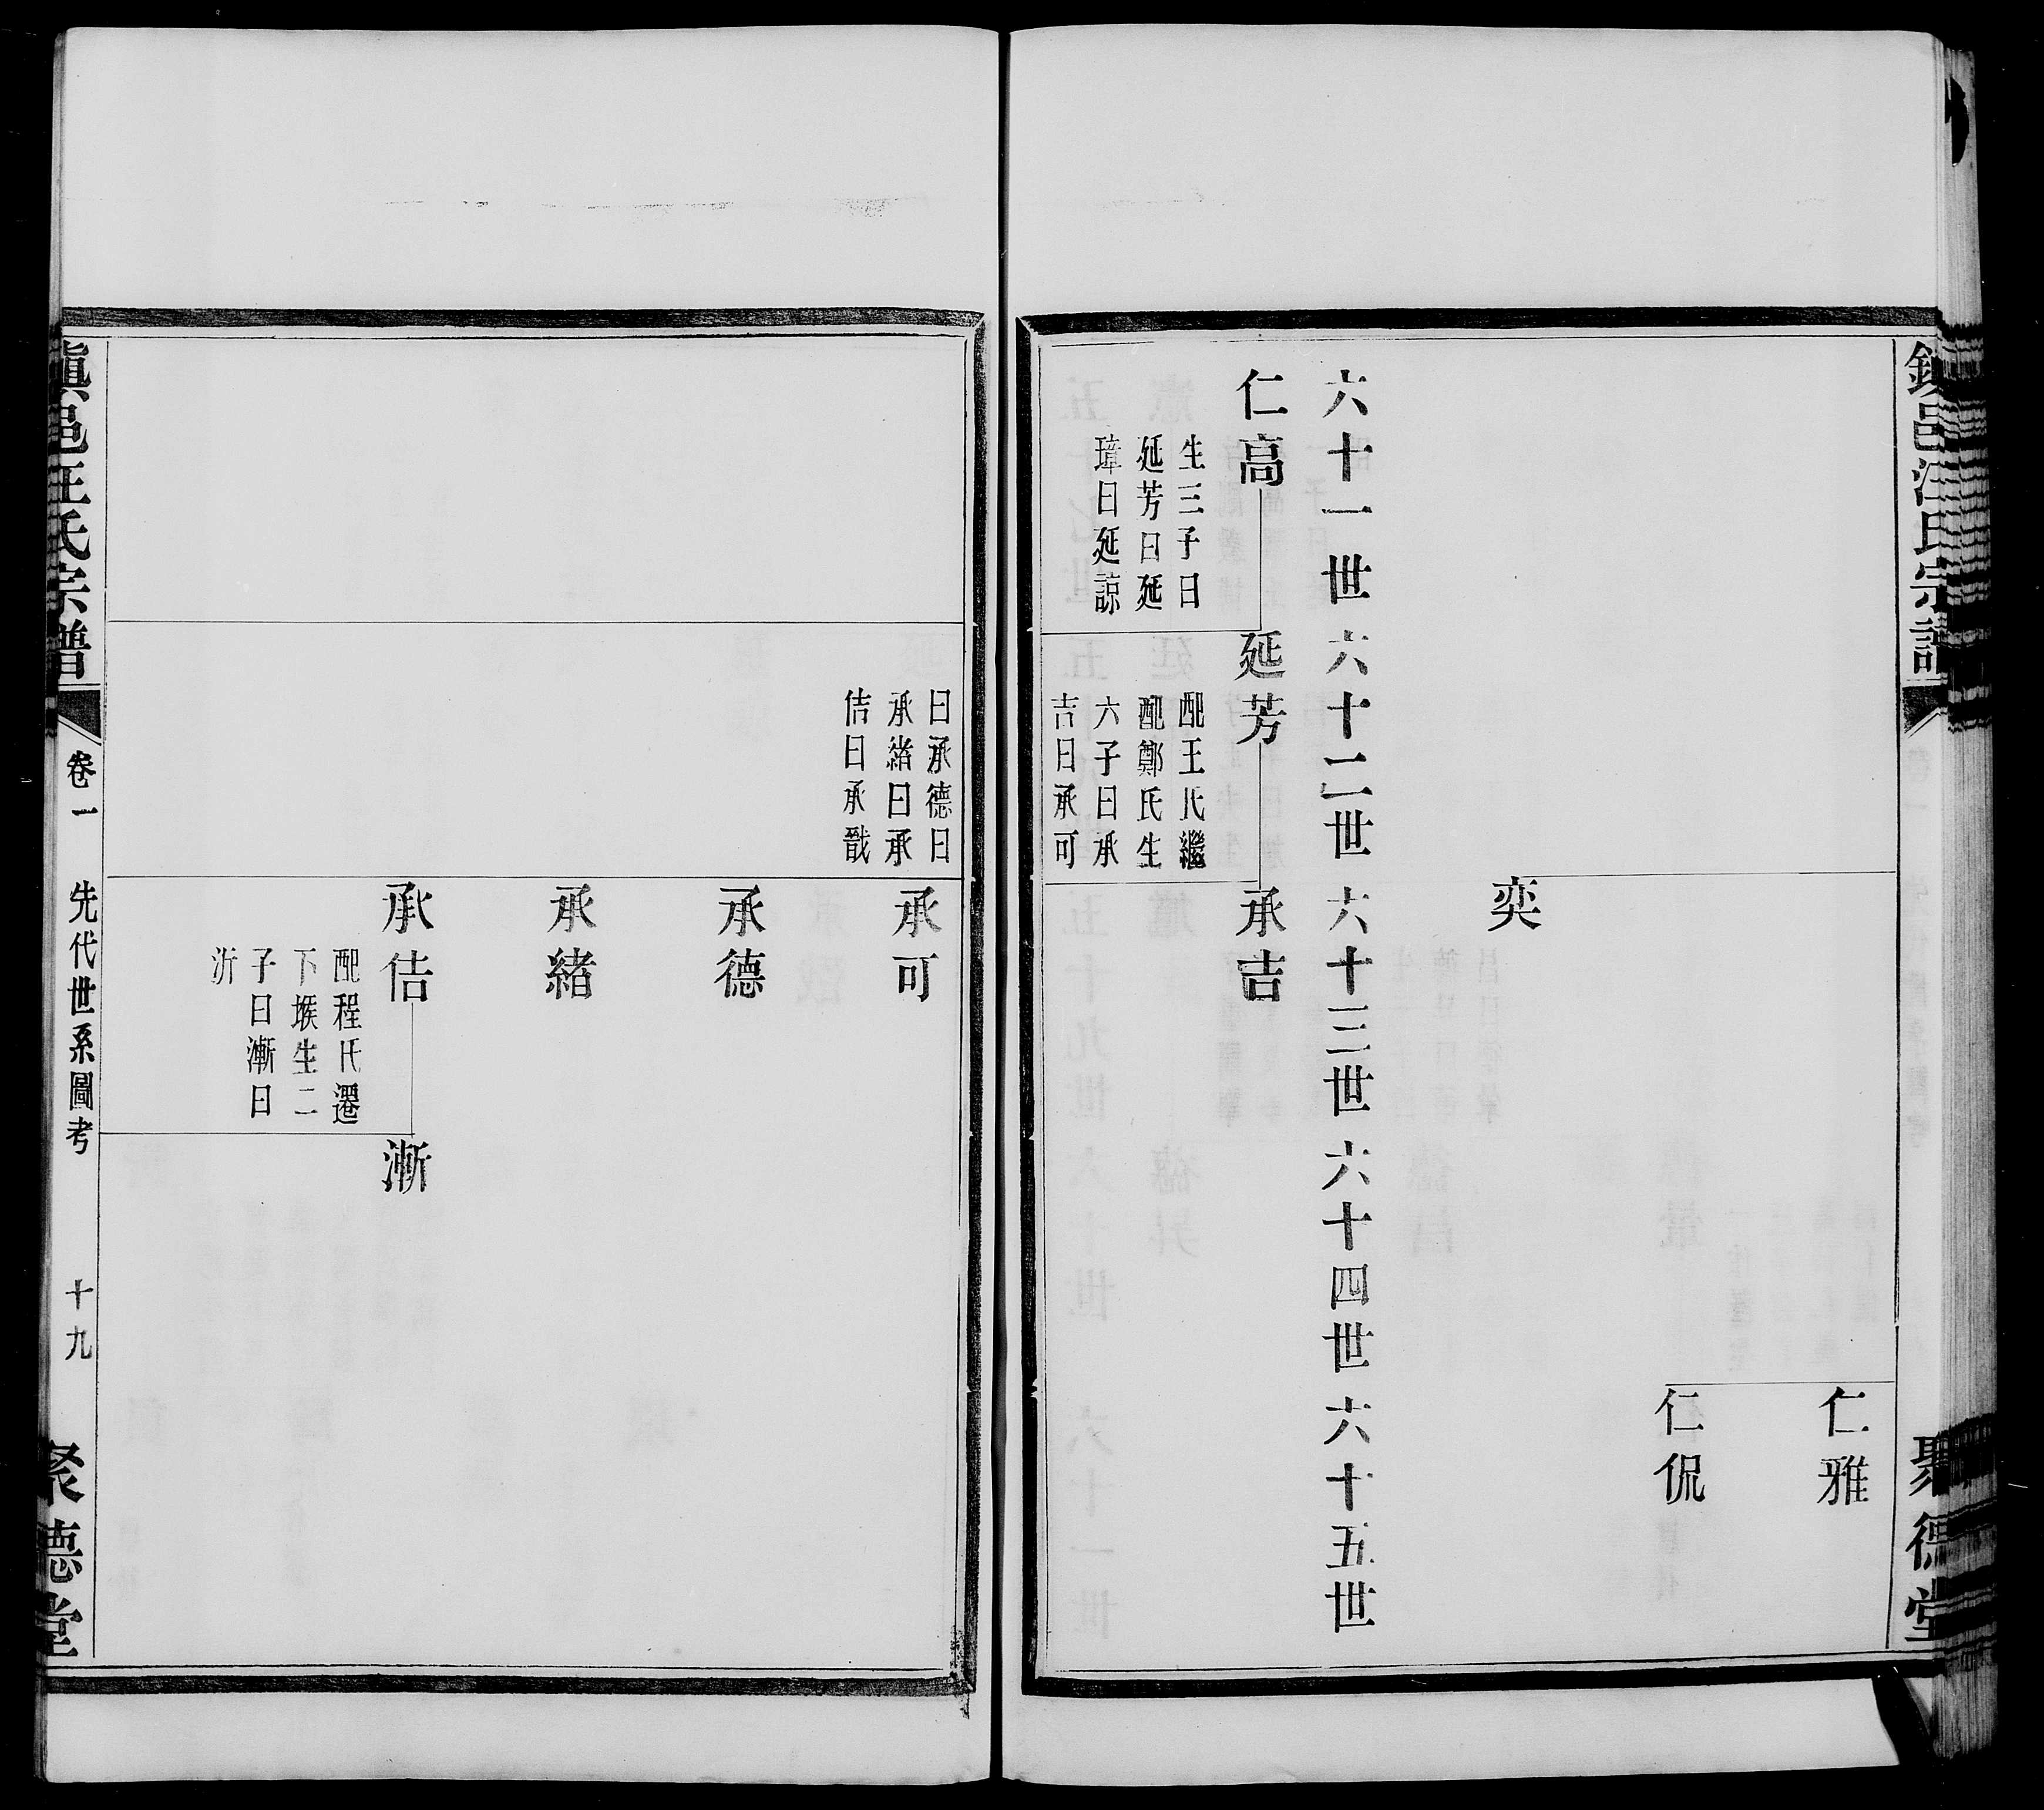 鎮邑汪氏宗譜
聚德堂
仁雅
仁侃
奕
六十一世
六十二世
六十三世
六十四世
六十五世
仁高
生三子曰
延芳曰延
璋曰延諒
延芳
配王氏繼
配鄭氏生
六子曰承
吉曰承可
承吉
曰承德曰
承緒曰承
佶曰承戬
承可
承德
承緒
承佶
配程氏遷
下堠生二
子曰漸曰
沂
漸
鎮邑汪氏宗譜
卷一
先代世系圖考
十九
聚德堂